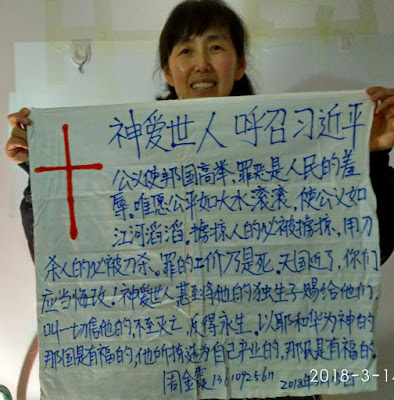 神爱世人 呼召习近平
公义使邦国高举、罪恶是人民的羞
辱。唯愿公平如大水滚滚、使公义如
江河滔滔。掳掠人的必被掳掠、用刀
杀人的必被刀杀、罪的工价乃是死。天国近了,你们
应当悔改!神爱世人甚至将他的独生子赐给他们、
叫一切信他的,不至灭亡,反得永生。以耶和华为神的
那国是有福的,他所拣选为自己产业的,那民是有福的。
周金霞
2018年
2018-3-14